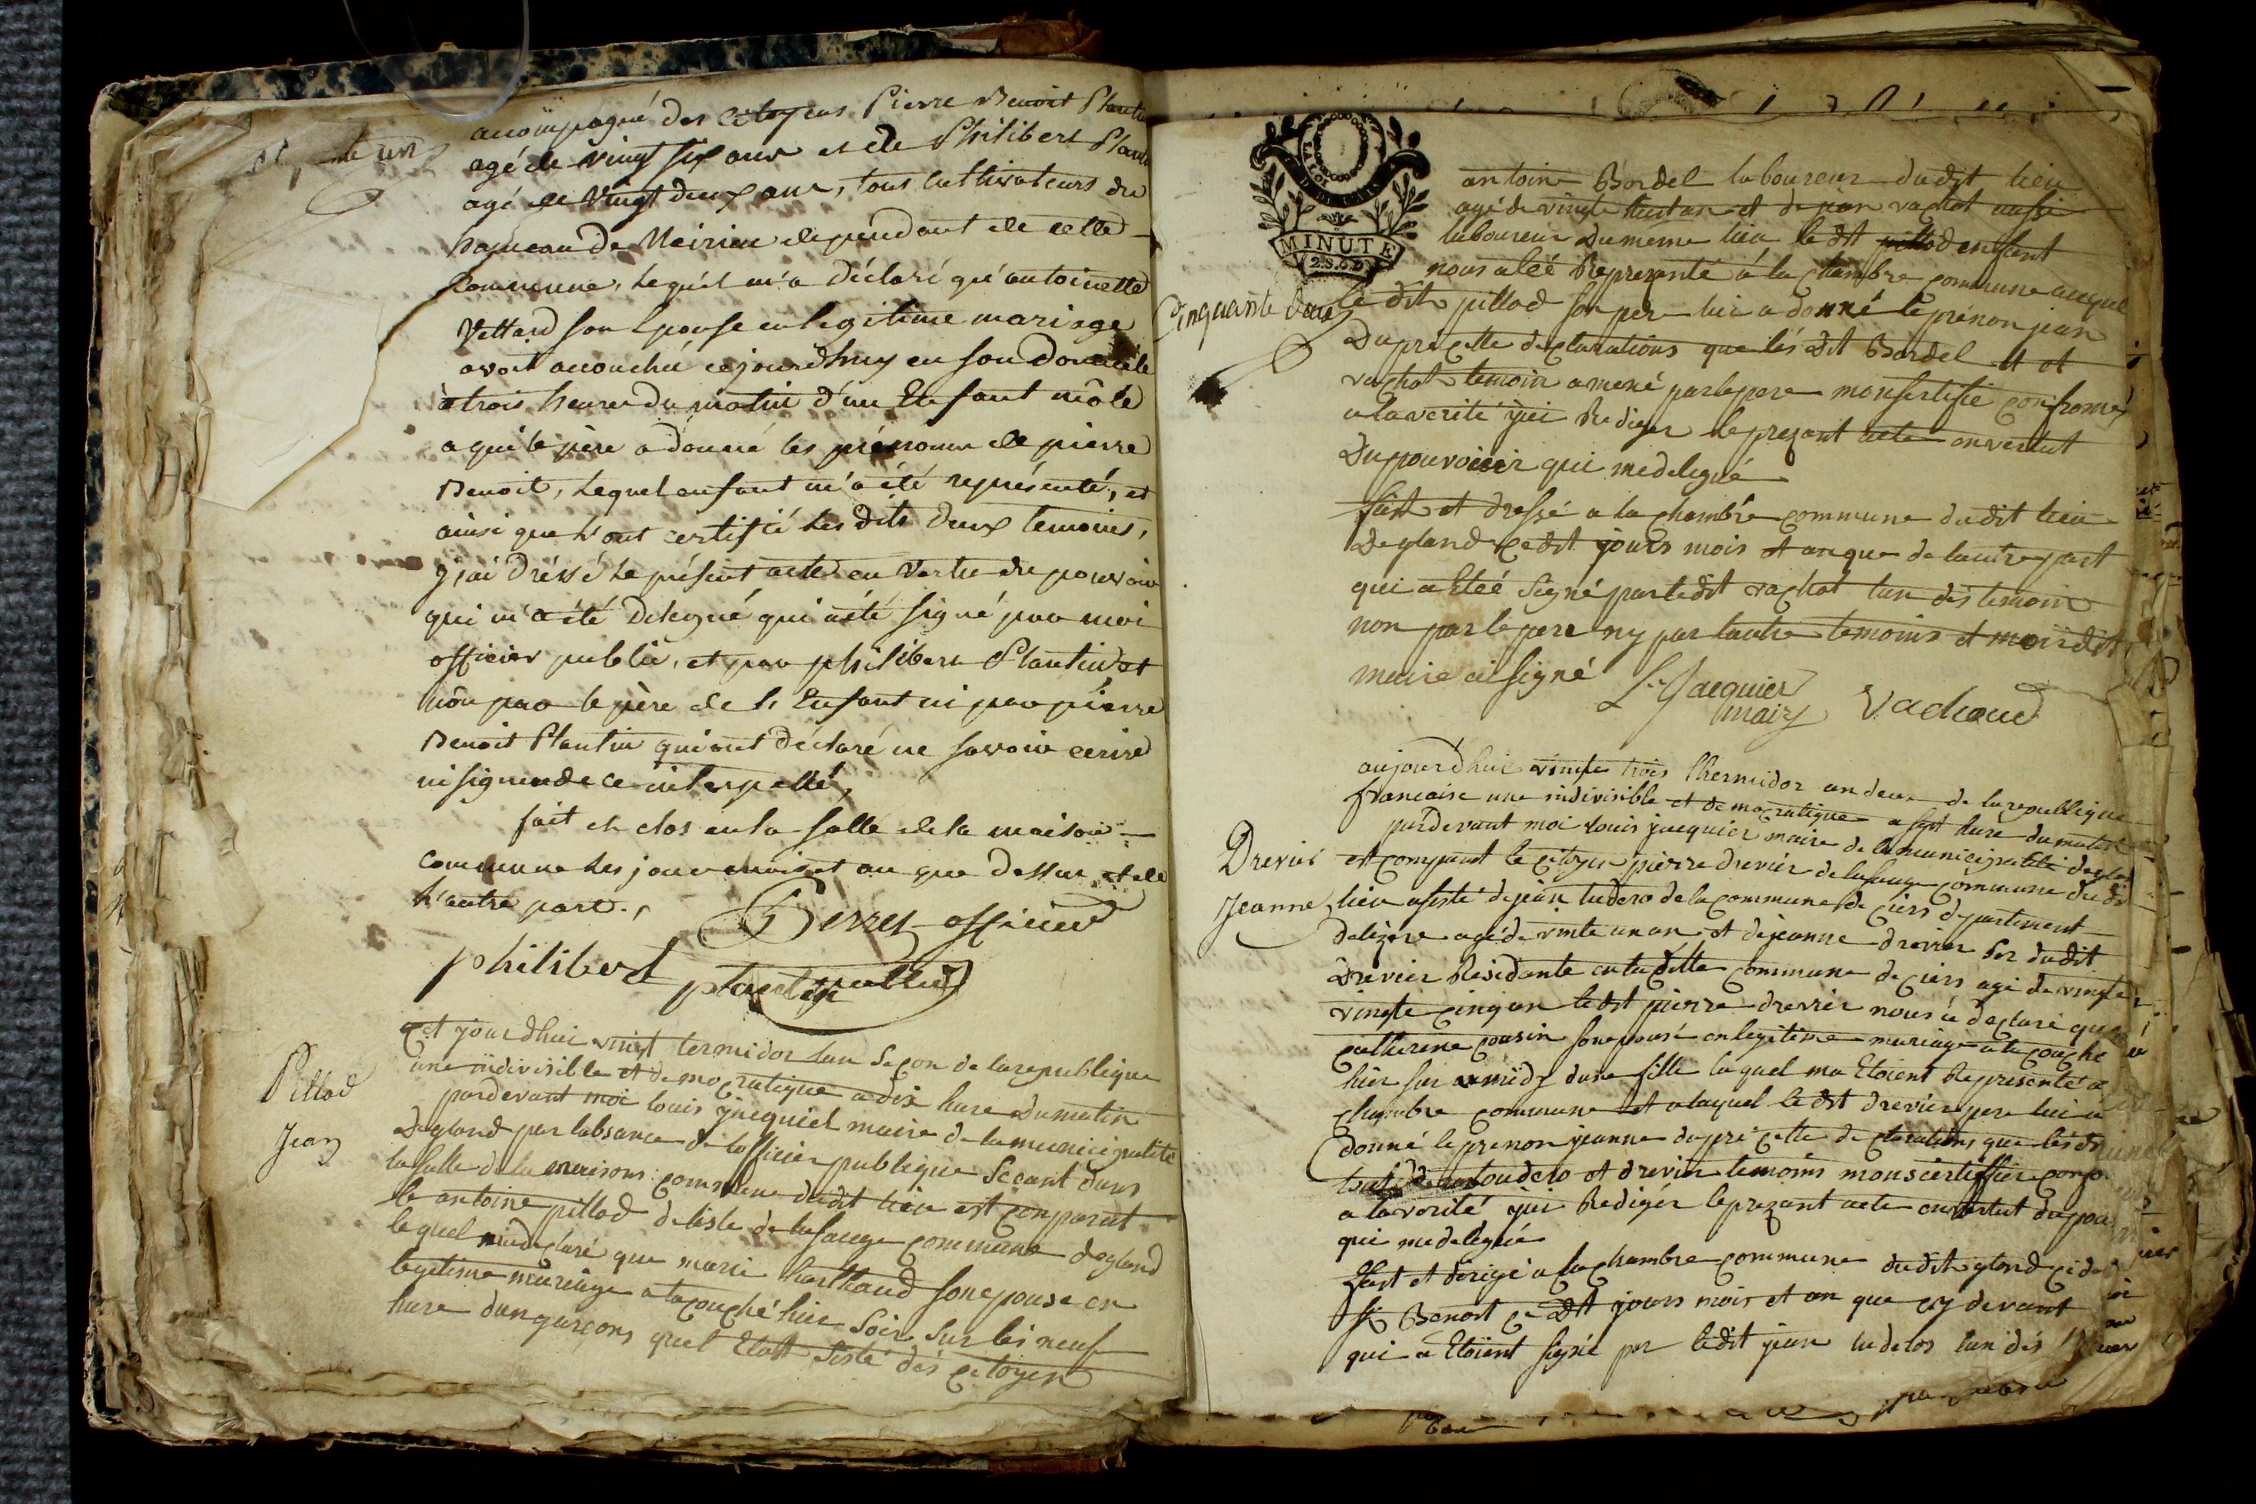 accompagné des citoyens Pierre Benoit Plantin
agé de vingt six ans et de Philibert Plantin
agé de vingt deux ans, tous cultivateurs du
hameau de Neirieu dependant de cette
commune, Lequel m'a déclaré qu'antoinette
Vettard son Epouse en legitime mariage
avoit accouché cejourdhuy en son Domicile
à trois heures du matin d'un Enfant mâle
a qui le père a donné les prénoms de pierre
Benoit, Lequel enfant m'a été représenté, et
ainsi que l'ont certifié les dits deux temoins,
j'ai dréssé le présent acte en Vertu du pouvoir
qui m'a été Délégué qui a été signé par moi
officier public, et par philibert Plantin et
nôn par le père de l'Enfant ni par pierre
Benoit Plantin qui ont déclaré ne savoir ecrire
ni signer de ce interpellé,
fait et clos en la salle de la maison
commune les jour mois et an que dessus et de
l'autre part.
officier
public
philibert plantin
Pillod
Jean
cet jourdhui vingt termidor lan segon de la republique
une indivisible et democratique a dix hure du matin
pardevant moi louis jacquiel maire de la municipalité
degland par labsance de lofficier publique Seeant dans
la salle de la maisons commune dudit lieu est conparut
le antoine pillod deliste de lasauge commune degland
lequel ma declaré que marie harthaud son epouse en
legitime mariage a lacouché hier soir sur les neuf
hure dun garçons quel Etoit sisté dés citoyen
MINUTE
2.S.6.D
Cinquante deux
antoine Bordel laboureur dudit lieu
agé de vingte huit an et de jean vachot aussi
laboureur du meme lieu le dit enfant
nous a leé Represanté á la chambre commune auquel
le dit pillod son per lui a donné le prénon jean
Daprê cette declarations que lés dit Bordel et
vachot temoin amené par le pere mon sertifié confromé
a la verité j'ai Rediger le prezant acte en vertut
Dupouvoieir qui me delegué
fait et dressé a la chambre commune dudit lieu
Degland cedit jours mois et an que de lautre part
qui a Eteé signé par ledit vachot lun des temoin
non par le pere ny par lautre temoins et moidit
maire ai signé
L. Jacquier
maire
Vachoud
Drevier
Jeanne
aujourdhui vingte trois thermidor an deux de la republique
francaise une indivisible et democratique a sept hure du matin
pardevant moi louis jacquier maire de la municipalité degland
est comparut le citoyen pierre drevier de lasauge commune dudit
lieu asisté de jean ludero de la commune de ciers departement
delizere agé de vinte un an et de jeanne drevier Ser dudit
Drevier Residante en la ditte commune de ciers agé de vingte
vingte cinq an ledit pierre drevier nous á declaré que
catherine cousin son epousé en legitime mariage a la couché
hier sur midy dune fille laquel ma Etoient Represente a
chambre commune et a laquel le dit drevier pere lui a
donné le prenon jeanne daprê cette declarations que lés dit
loudero et drevier temoins mon sertiffier
a la vérité j'ai Rediger le prezant acte en vertut dupou
qui me delegué
fait et dérigé a la chambre commune dudit gland
St Benoit ce dit jours mois et an que cy devant
qui a Etoient signé par ledit jean luderos lun dés